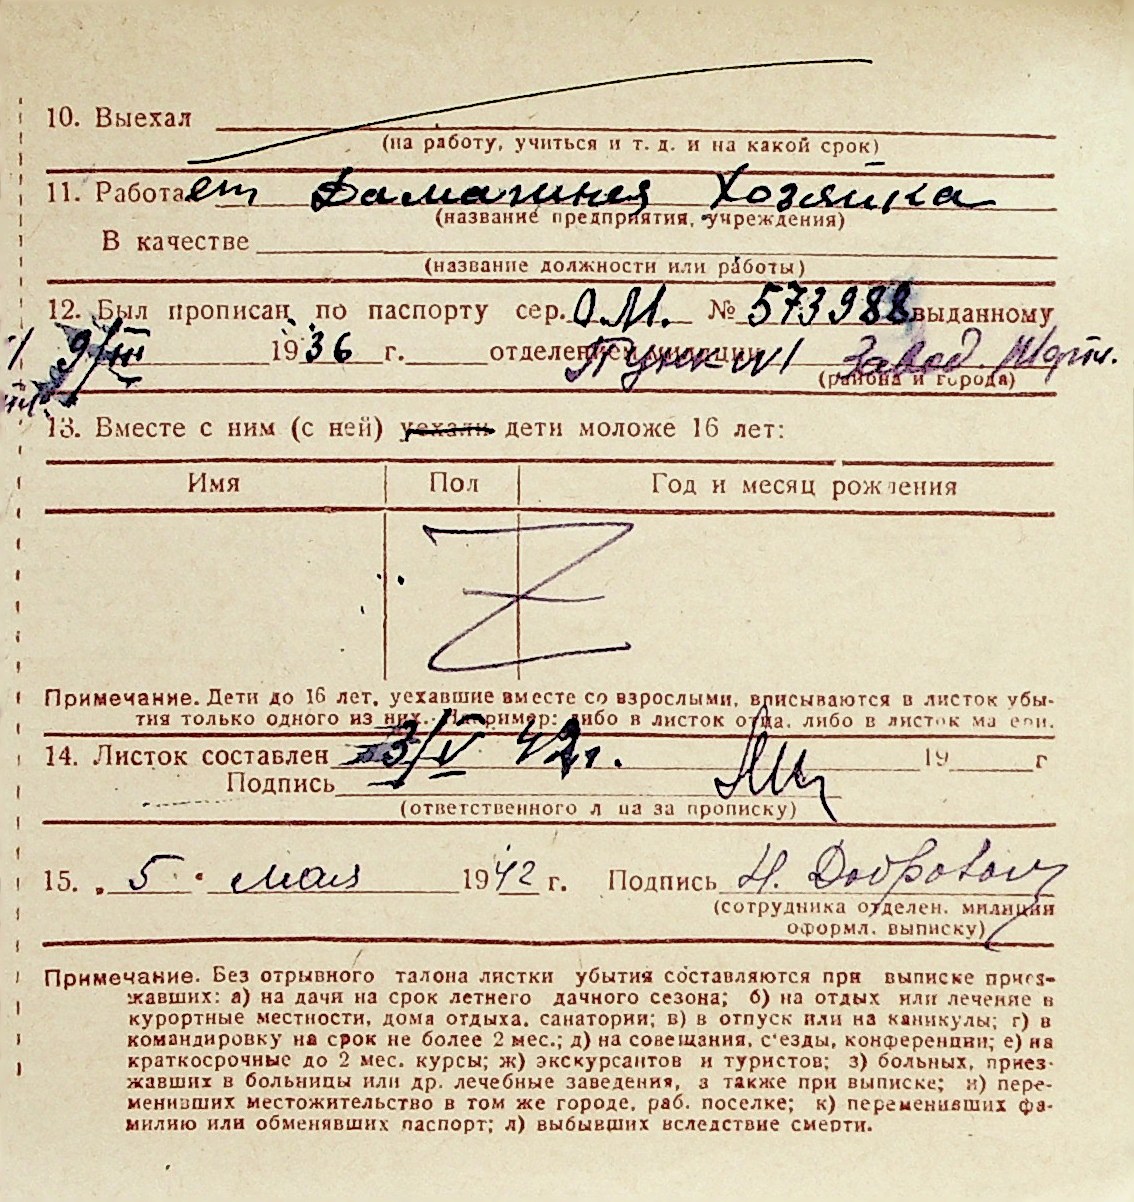 10. Выехал
(на работу, учиться и т. д. и на какой срок)
11. Работает Дамашняя Хозяйка
(название предприятия, учреждения)
В качестве
(название должности или работы)
12. Был прописан по паспорту сер. О.М. № 573988 выданному
9/III 1936 г. отделением милиции Пункт 1 Завод.
(района и города)
13. Вместе с ним (с ней) уехали дети моложе 16 лет:
Имя Пол Год и месяц рождения
Z
Примечание. Дети до 16 лет, уехавшие вместе со взрослыми, вписываются в листок убы-
тия только одного из них. Например: либо в листок отца, либо в листок матери.
14. Листок составлен 3/V 42г. 19 г
Подпись
(ответственного лица за прописку)
15. „5" мая 1942 г. Подпись Н. Добровол
(сотрудника отделен. милиции
оформл. выписку)
Примечание. Без отрывного талона листки убытия составляются при выписке приез-
жавших: а) на дачи на срок летнего дачного сезона; б) на отдых или лечение в
курортные местности, дома отдыха, санатории; в) в отпуск или на каникулы; г) в
командировку на срок не более 2 мес.; д) на совещания, с'езды, конференции; е) на
краткосрочные до 2 мес. курсы; ж) экскурсантов и туристов; з) больных, приез-
жавших в больницы или др. лечебные заведения, а также при выписке; и) пере-
менивших местожительство в том же городе, раб. поселке; к) переменивших фа-
милию или обменявших паспорт; л) выбывших вследствие смерти.